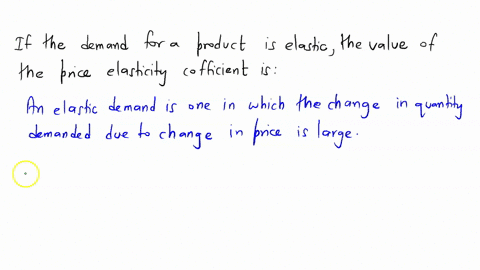 If the demand for a product is elastic, the value of
the price elasticity cofficient is:
An elastic demand is one in which the change in quantity
demanded due to change in price is large.